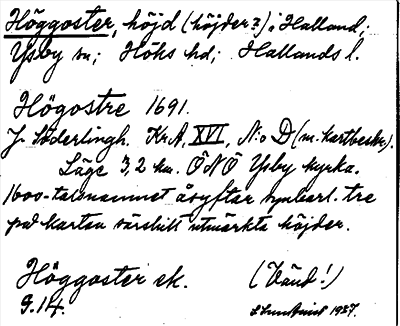 Höggoster, höjd (höjder?) i Halland;
Ysby sn; Höks hd; Hallands l.
Högostre 1691.
J. Söderlingh. Kr.A. XVI, N:o D (m. kartbeskr.).
Läge 3,2 km. ÖNÖ Ysby kyrka.
1600-talsnamnet åsyftar synbarl. tre
på kartan särskilt utmärkta höjder.
Höggoster ek. (Vänd!)
G.14. 1927.